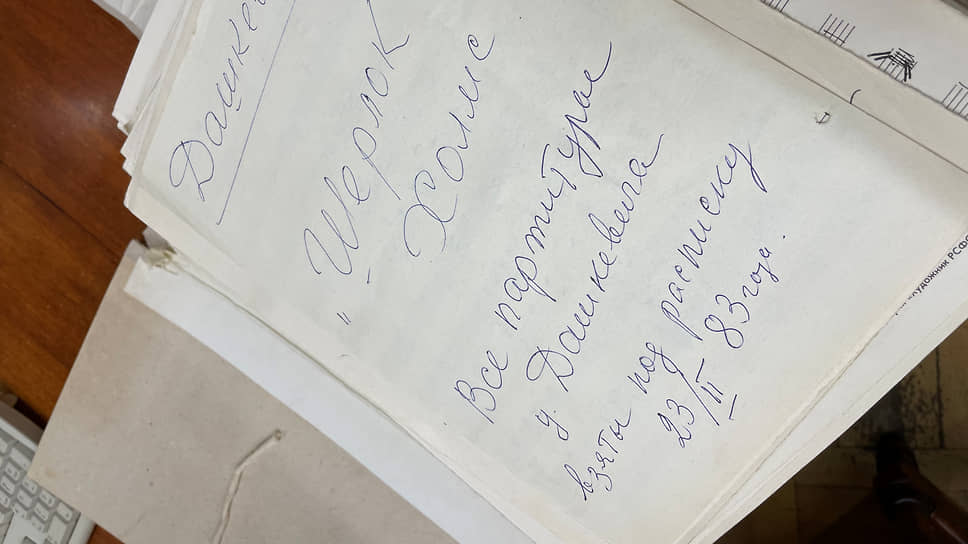 Дашке
"Шерлок
Холмс
Все партитуры
у Дашкевича
взяты под расписку
23/II 83 года.
художник РСФ